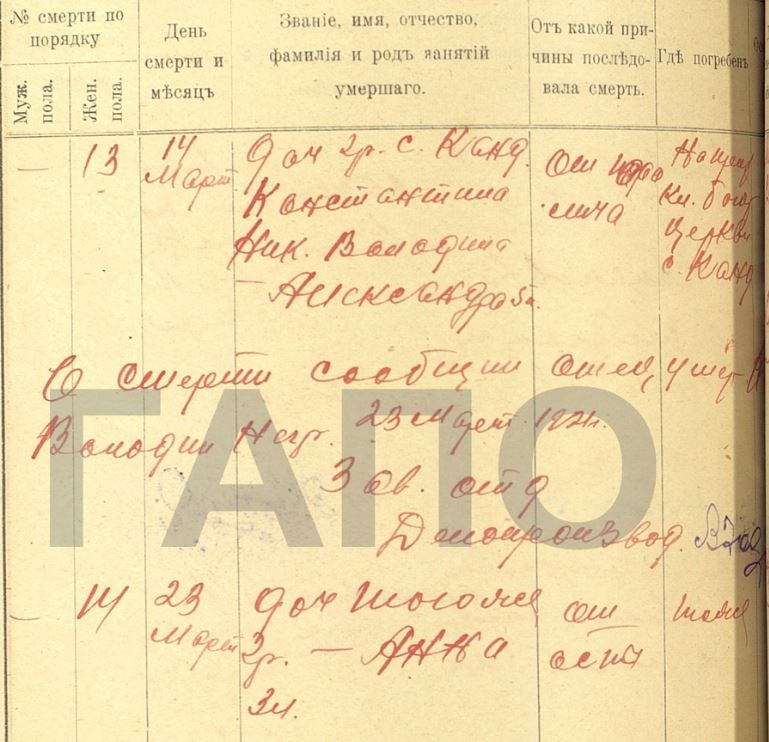 № смерти по порядку
Муж. пола.
Жен. пола.
День смерти и мѣсяцъ
Званіе, имя, отчество, фамилія и родъ занятій умершаго.
Отъ какой причины послѣдовала смерть.
Гдѣ погребенъ
— 13 14 Март
Доч гр. с. Канд.
Константина
Ник. Володина
— Александра 5
от
На
Кл. бог
Церкви
с. Канд
О смерти сообщил отец, умер
Володин Негр. 23 Март 1921г.
Зав. отд
Делопроизвод.
— 14 23 Март
Доч того же
гр. — Анна
3 л.
от
осп
там же
ГАПО